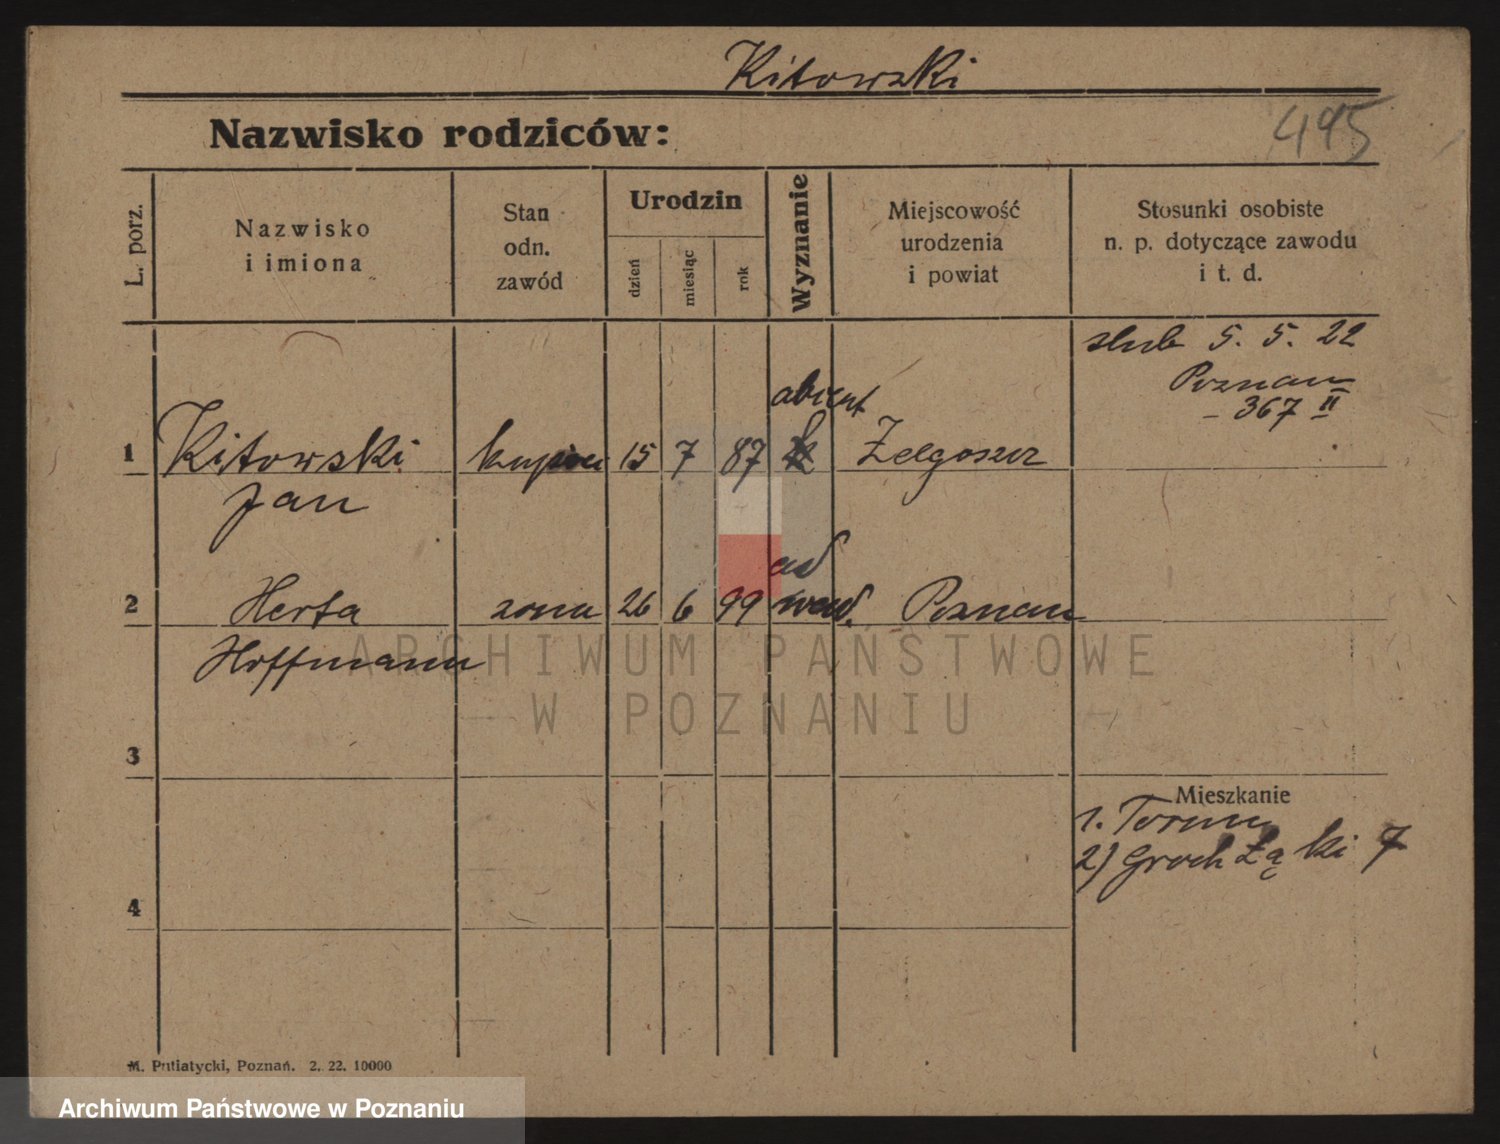 Kitowski
Nazwisko rodziców:
495
L. porz.
Nazwisko
i imiona
Stan
odn.
zawód
Urodzin
dzień
miesiąc
rok
Wyznanie
Miejscowość
urodzenia
i powiat
Stosunki osobiste
n. p. dotyczące zawodu
i t. d.
slub 5. 5. 22
Poznan
- 367 II
1 Kitowski kupiec 15 7 87 k Zelgoszcz
Jan
2 Herta zona 26 6 99 Poznan
Hoffmann
3
Mieszkanie
1. Torun
2) Groch Łąki 7
4
ARCHIWUM PAŃSTWOWE
W POZNANIU
M. Putiatycki, Poznań. 2. 22. 10000
Archiwum Państwowe w Poznaniu